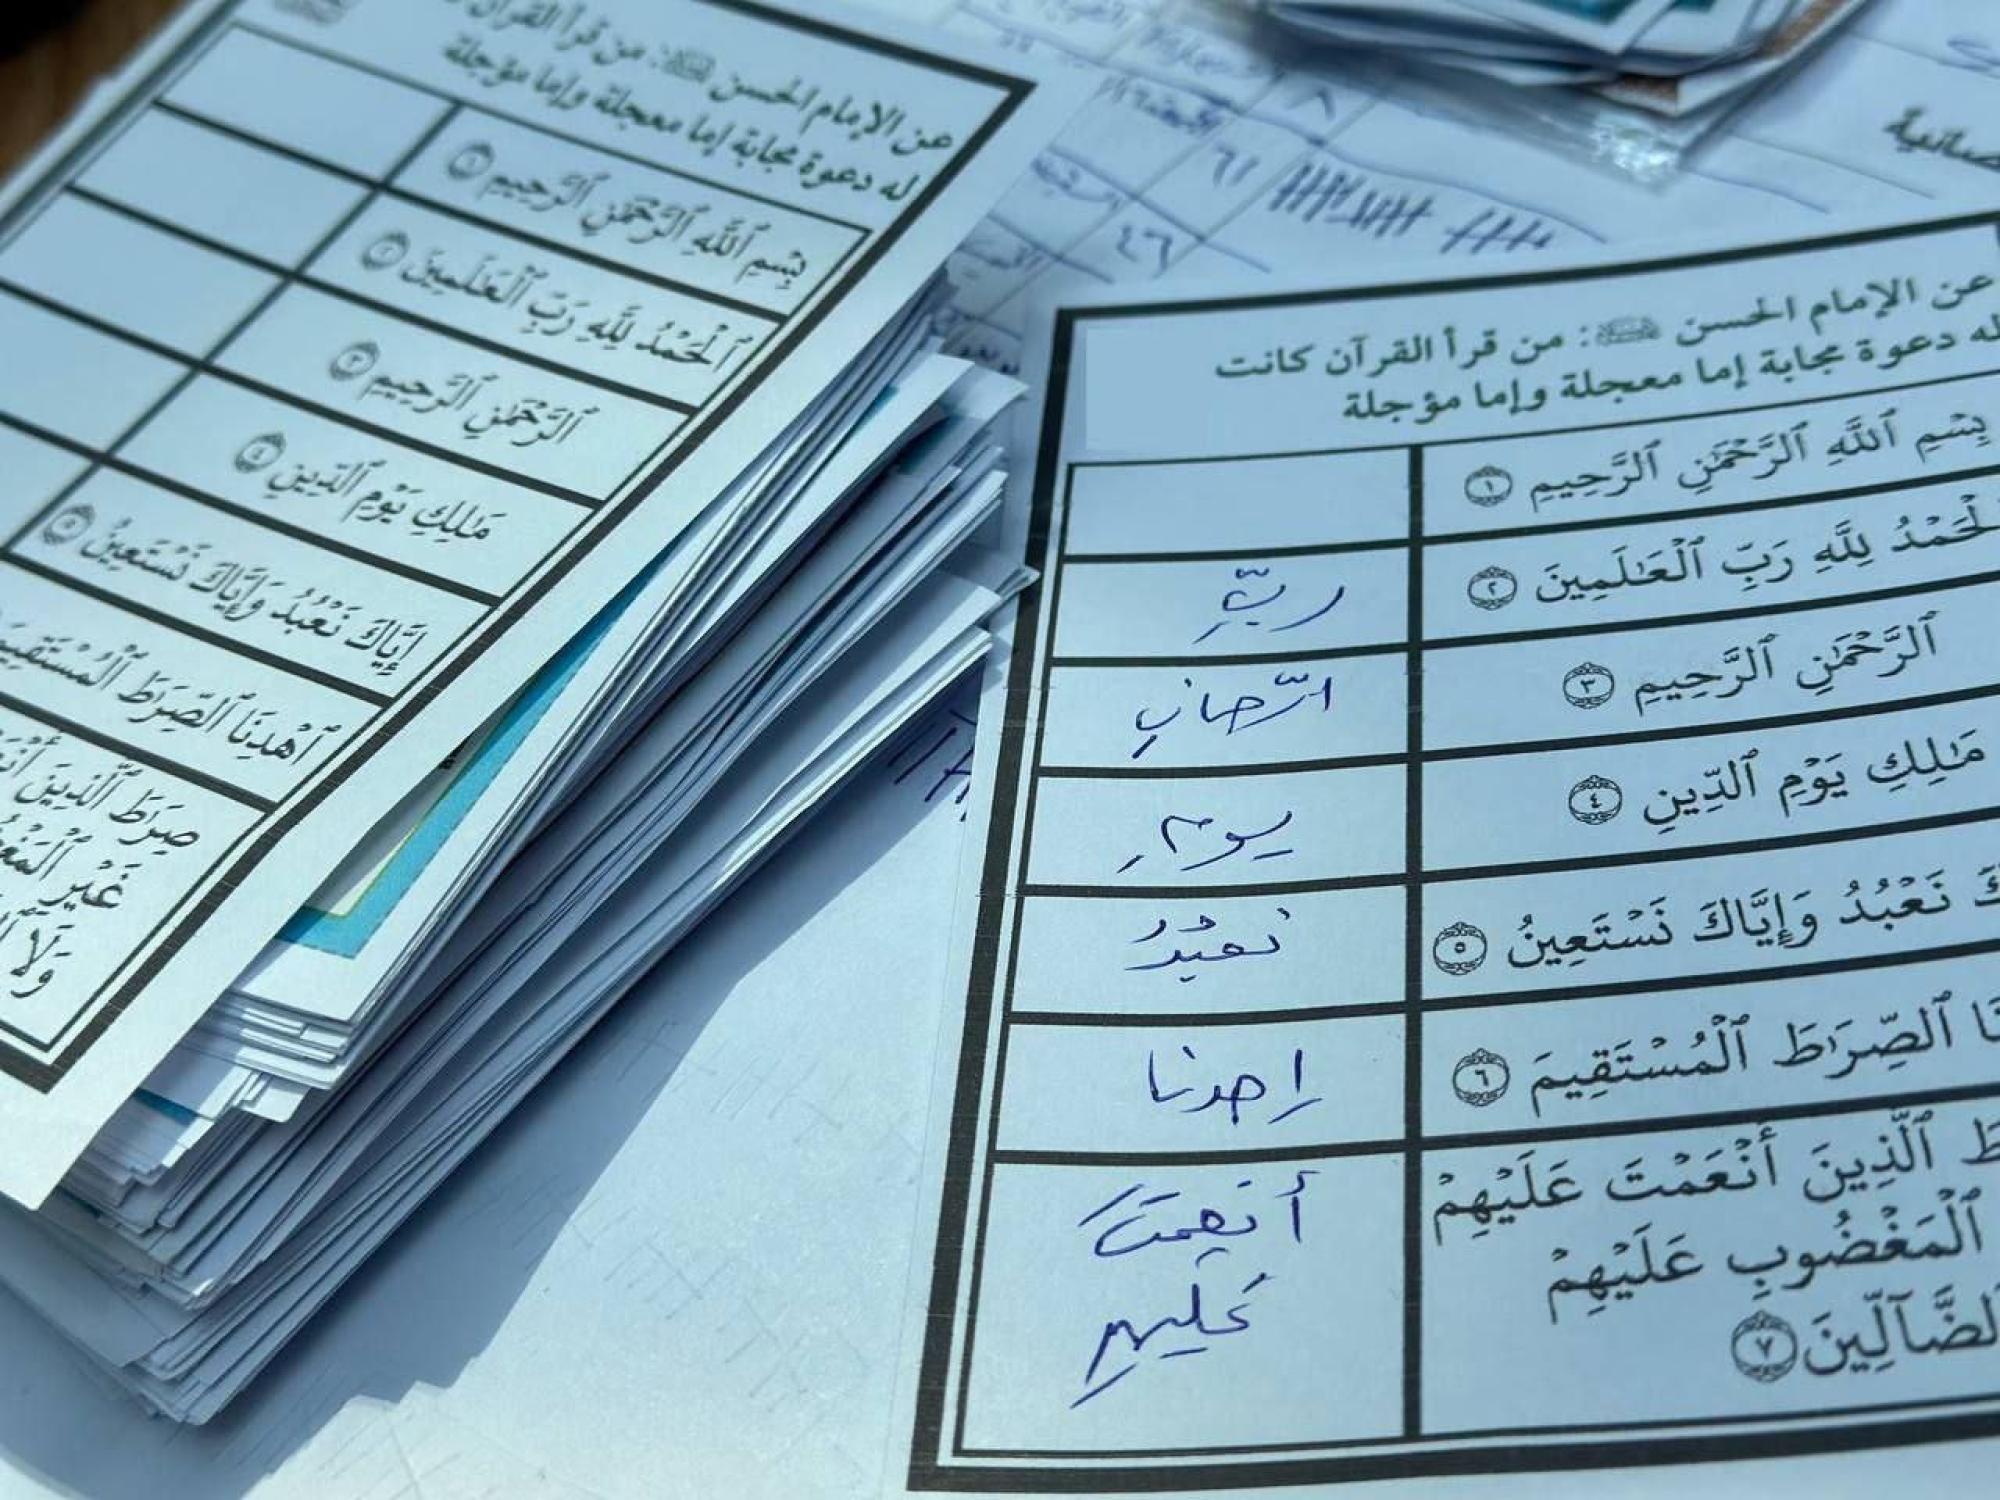 عن الإمام الحسن : من قرأ القرآن
له دعوة مجابة إما معجلة وإما مؤجلة
بِسْمِ ٱللَّهِ ٱلرَّحْمَٰنِ ٱلرَّحِيمِ ١
ٱلْحَمْدُ لِلَّهِ رَبِّ ٱلْعَٰلَمِينَ ٢
ٱلرَّحْمَٰنِ ٱلرَّحِيمِ ٣
مَٰلِكِ يَوْمِ ٱلدِّينِ ٤
إِيَّاكَ نَعْبُدُ وَإِيَّاكَ نَسْتَعِينُ ٥
ٱهْدِنَا ٱلصِّرَٰطَ ٱلْمُسْتَقِيمَ
صِرَٰطَ ٱلَّذِينَ
غَيْرِ
وَلَا
٨
٦١
٤٦
عن الإمام الحسن : من قرأ القرآن كانت
له دعوة مجابة إما معجلة وإما مؤجلة
بِسْمِ ٱللَّهِ ٱلرَّحْمَٰنِ ٱلرَّحِيمِ ١
لْحَمْدُ لِلَّهِ رَبِّ ٱلْعَٰلَمِينَ ٢ ربِّ
ٱلرَّحْمَٰنِ ٱلرَّحِيمِ ٣ الرّحمانِ
مَٰلِكِ يَوْمِ ٱلدِّينِ ٤ يومِ
كَ نَعْبُدُ وَإِيَّاكَ نَسْتَعِينُ ٥ نعبدُ
نَا ٱلصِّرَٰطَ ٱلْمُسْتَقِيمَ ٦ إهدنا
طَ ٱلَّذِينَ أَنْعَمْتَ عَلَيْهِمْ أنعمتَ
ٱلْمَغْضُوبِ عَلَيْهِمْ عَليهِم
لضَّآلِّينَ ٧